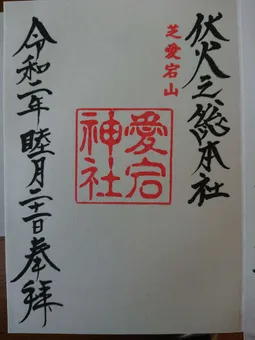 伏火之総本社
芝愛宕山
愛宕神社
令和二年睦月二十一日奉拝